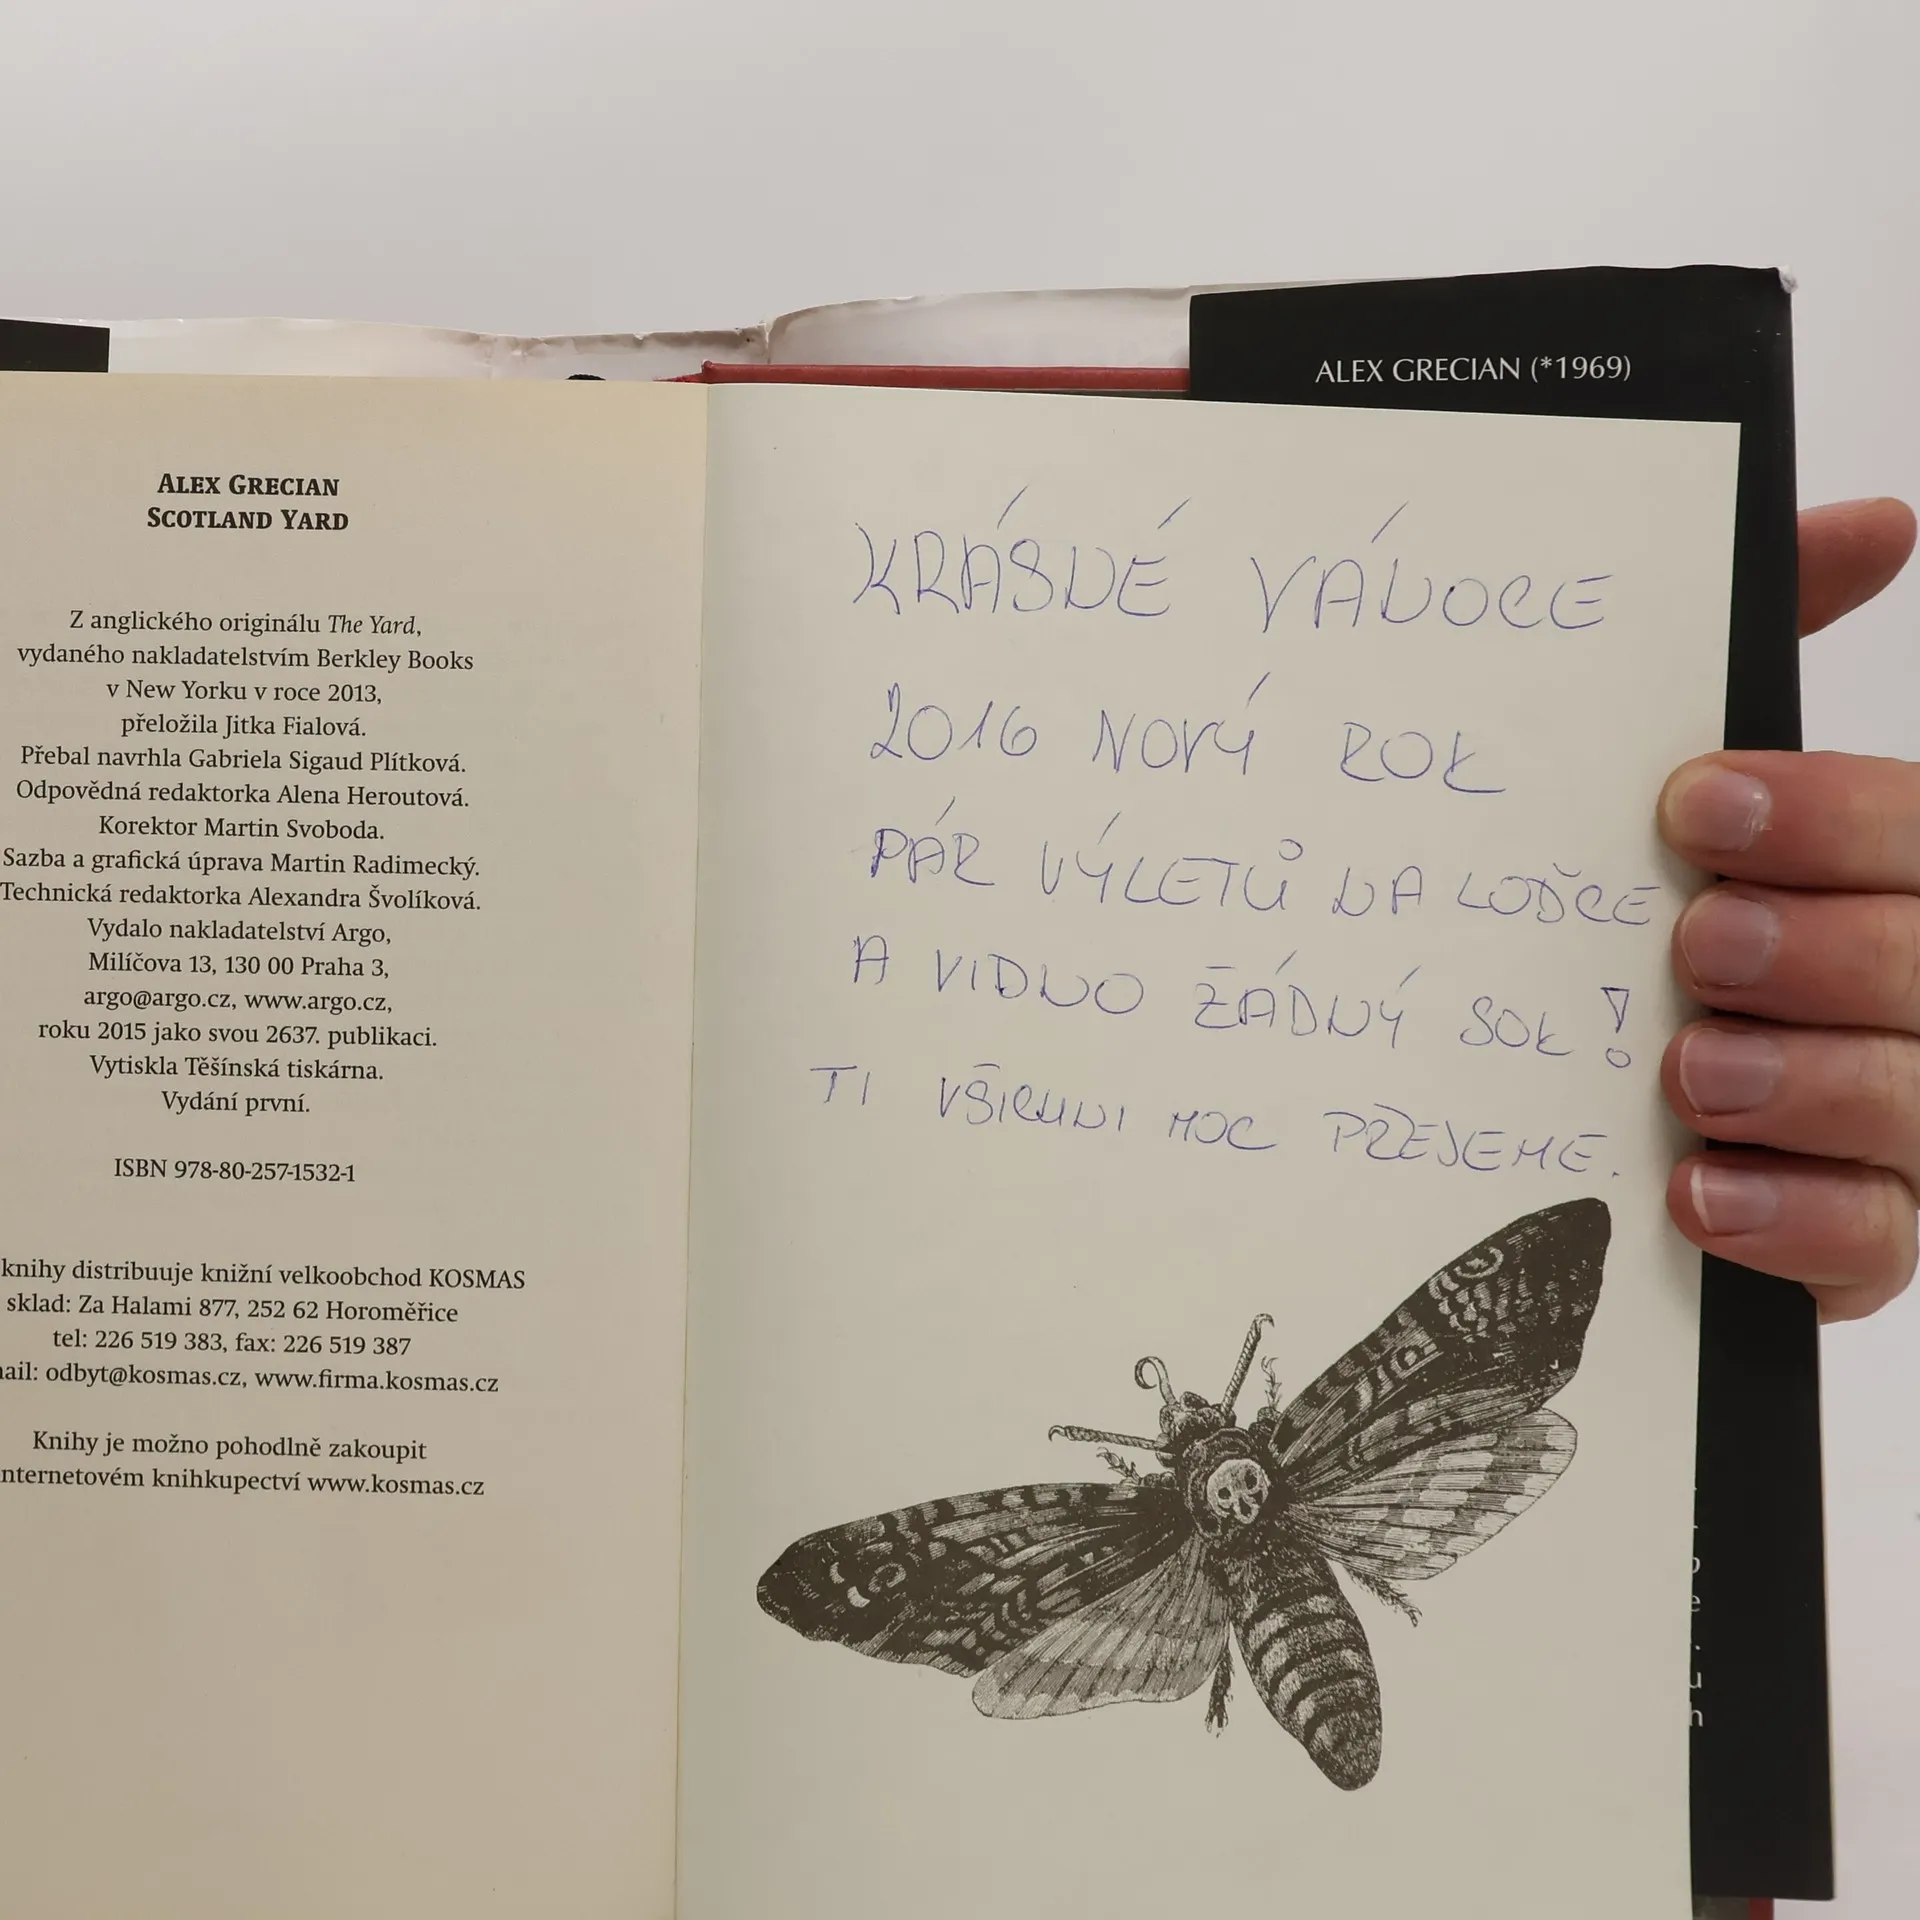 ALEX GRECIAN
SCOTLAND YARD
Z anglického originálu The Yard,
vydaného nakladatelstvím Berkley Books
v New Yorku v roce 2013,
přeložila Jitka Fialová.
Přebal navrhla Gabriela Sigaud Plítková.
Odpovědná redaktorka Alena Heroutová.
Korektor Martin Svoboda.
Sazba a grafická úprava Martin Radimecký.
Technická redaktorka Alexandra Švolíková.
Vydalo nakladatelství Argo,
Milíčova 13, 130 00 Praha 3,
argo@argo.cz, www.argo.cz,
roku 2015 jako svou 2637. publikaci.
Vytiskla Těšínská tiskárna.
Vydání první.
ISBN 978-80-257-1532-1
knihy distribuuje knižní velkoobchod KOSMAS
sklad: Za Halami 877, 252 62 Horoměřice
tel: 226 519 383, fax: 226 519 387
ail: odbyt@kosmas.cz, www.firma.kosmas.cz
Knihy je možno pohodlně zakoupit
nternetovém knihkupectví www.kosmas.cz
ALEX GRECIAN (*1969)
KRÁSNÉ VÁNOCE
2016 NOVÝ ROK
PÁR VÝLETŮ NA LOĎCE
A VIDNO ŽÁDNÝ SOK!
TI VŠICHNI MOC PŘEJEME.